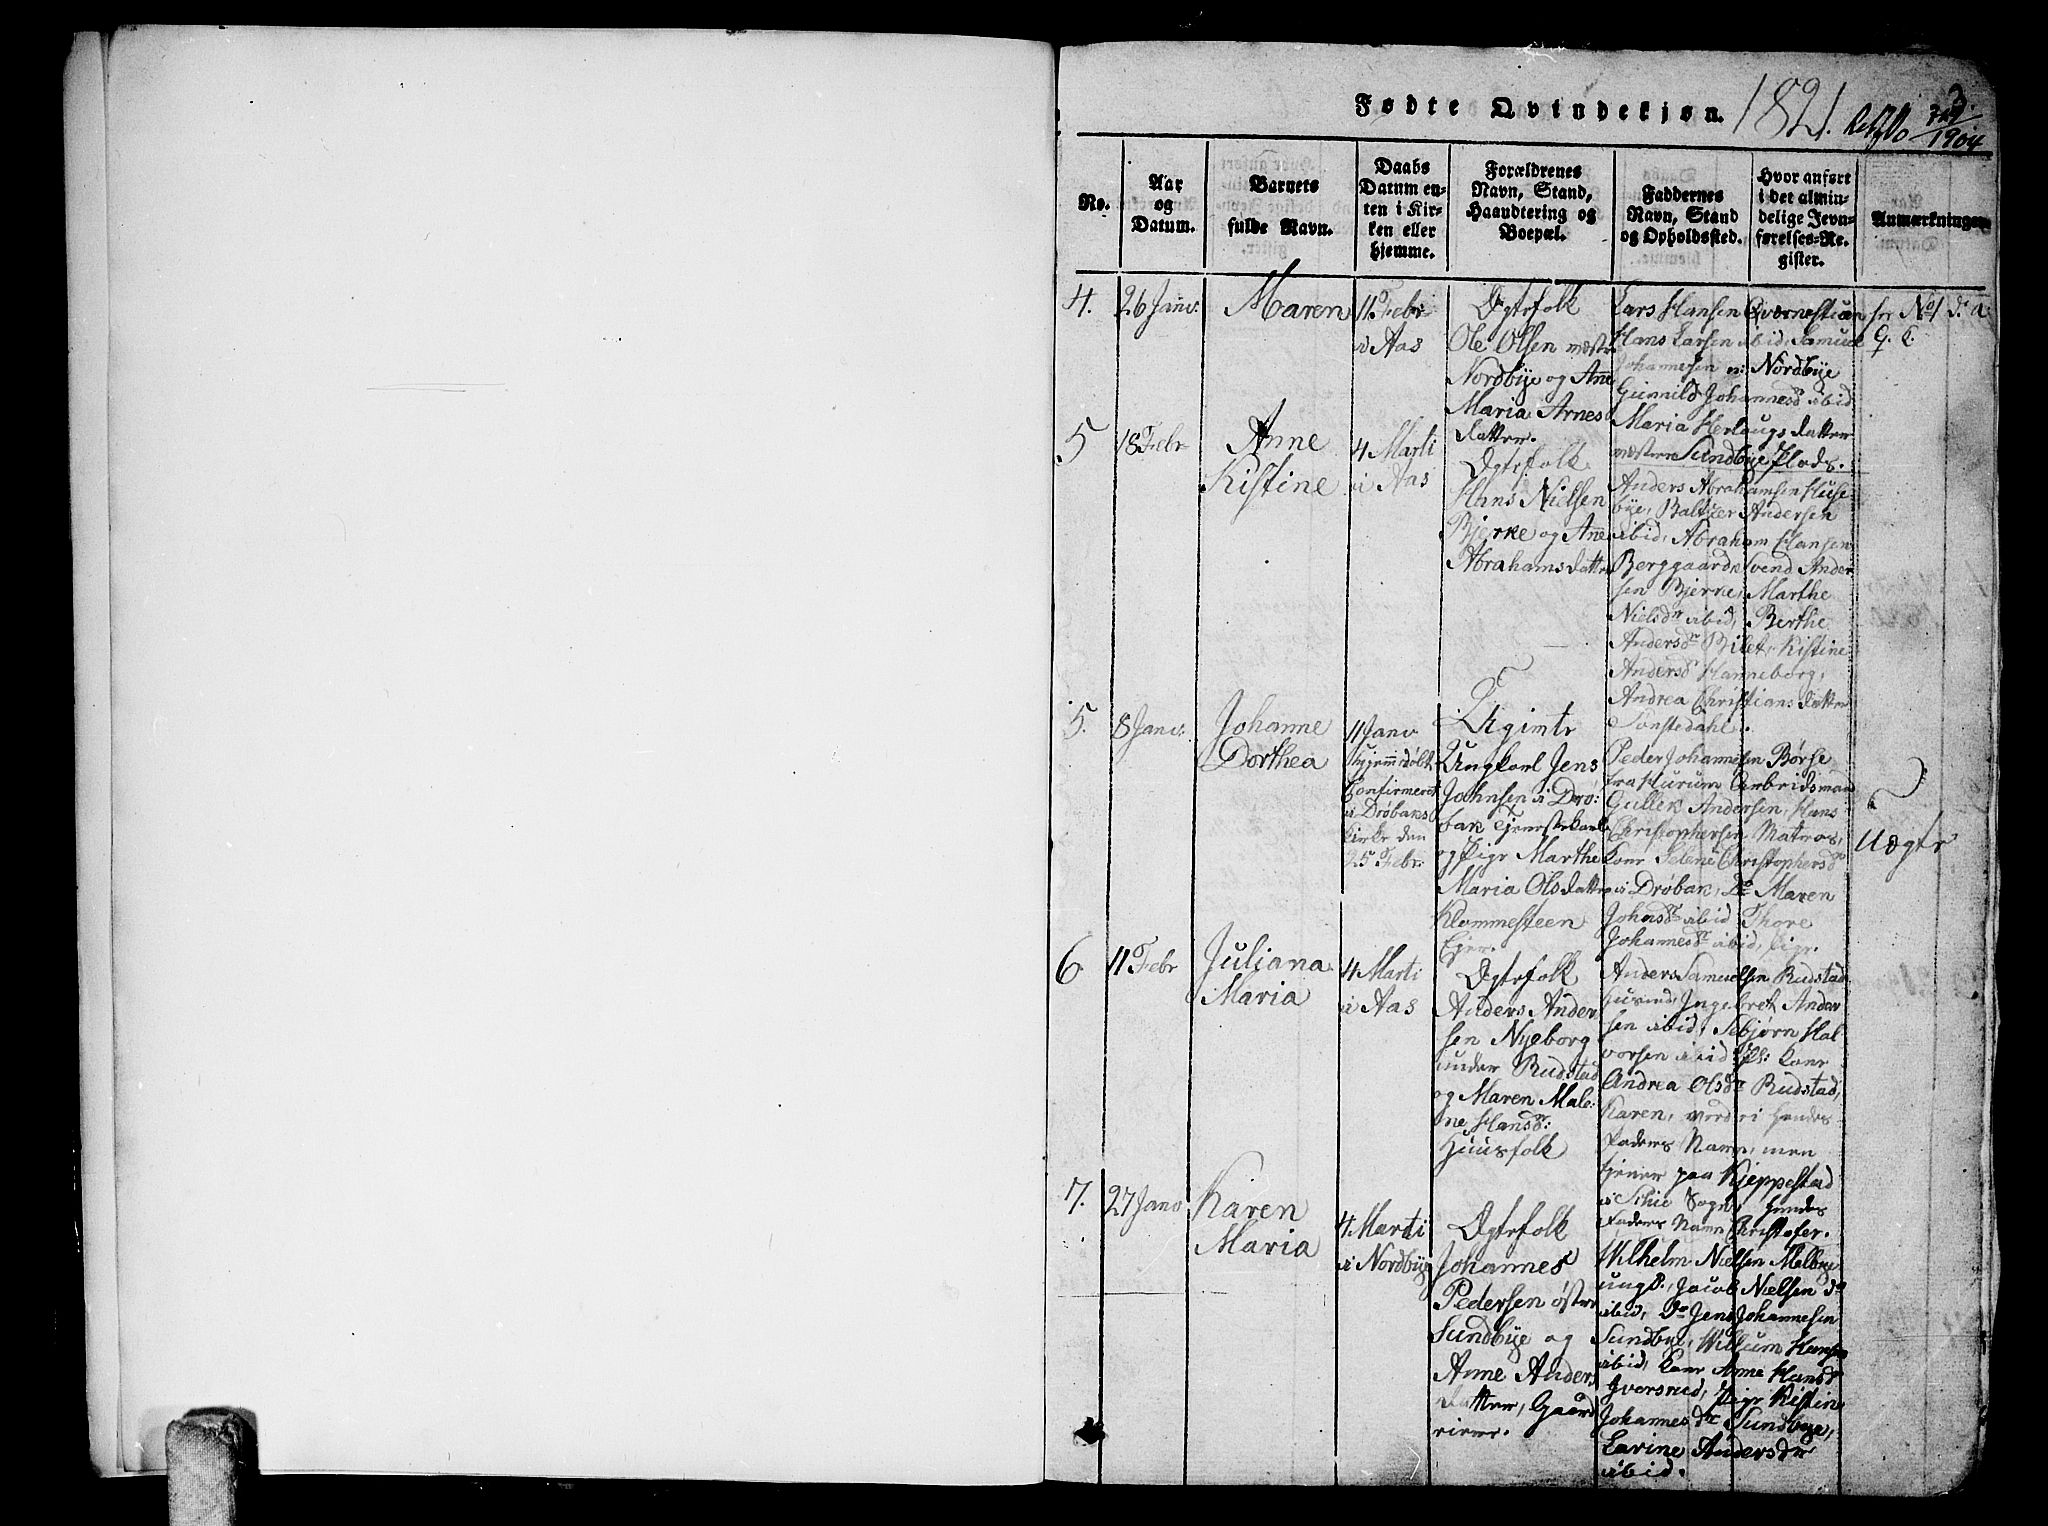 Fødte Qvindekjøn. 1821.
3.
1904
No.
Aar
og
Datum.
Barnets
fulde Navn.
Daabs
Datum en-
ten i Kir-
ken eller
hjemme.
Forældrenes
Navn, Stand,
Haandtering og
Boepæl.
Faddernes
Navn, Stand
og Opholdssted.
Hvor anført
i det almin-
delige Jevn-
førelses-Re-
gister.
Anmærkninger
4.
26 Janv:
Maren
11 Febr
i Aas
Ægtefolk
Ole Olsen westre
Nordbÿe og Ane
Maria Arnes
datter.
Lars Hansen Qværnestuen
Hans Larsen ibid, Samuel
Johannesen n: Nordbÿe
Gunnild Johannesd ibid
Maria Herlougs datter
westre Sundbÿe Plads.
No 1
5
18 Febr
Anne
Kistine
4 Marti
i Aas
Ægtefolk
Hans Nielsen
Bjerke og Ane
Abrahams datter
Anders Abrahamsen Huse-
bÿe, Baltzer Andersen
ibid, Abraham Hansen
Berggaard, Svend Ander
sen Bjerke, Marthe
Nielsdr ibid, Berthe
Andersdr Bilet, Kistine
Andersdr Hanneborg,
Andrea Christians datter
Sonstedahl.
5.
8 Janv:
Johanne
Dorthea
11 Janv
hjemmedøbt
Confirmeret
i Drøbaks
Kirke den
25 Febr
Uægnte
Ungkarl Jens
Johnsen i Drø:
bak Tjenestekarl
og Pige Marthe
Maria Ols datter
Klommesteen
Eier.
Peder Johannesen Børse
fra Hurum Arbeidsmand
Gullek Andersen, Hans
Christophersen Matros,
Kone Selene Christophersdr
i Drøbak, Do Maren
Johnsdr ibid Thore
Johannesdr ibid, Pige.
Uægte
6
11 Febr
Juliana
Maria
4 Marti
i Aas
Ægtefolk
Anders Ander
sen Nyeborg
under Rudstad
og Maren Male:
ne Hansdr:
Huusfolk
Anders Samuelsen Rudstad
Huusmd, Ingebret Ander
sen ibid, Sebjørn Hal
vorsen ibid Pl: Kone
Andrea Olsdr Rudstad,
Karen, hendes
Faders Navn, men
tjener paa Kjeppestad
i Schie Sogn, hendes
Faders Navn Christofer.
7.
27 Janv
Karen
Maria
4 Marti
i Nordbÿe
Ægtefolk
Johannes
Pedersen østre
Sundbÿe og
Anne Anders
datter, Gaard
eiere.
Wilhelm Nielsen Melbye
ungk. Jacob Nielsen do
ibid, Do Jens Johannesen
Sundbye, Willum Hansen
ibid, Kone Anne Hansd
Iversrud, Pige Kistine
Johannesdr Sundbye,
Larine Andersdr
ibid.